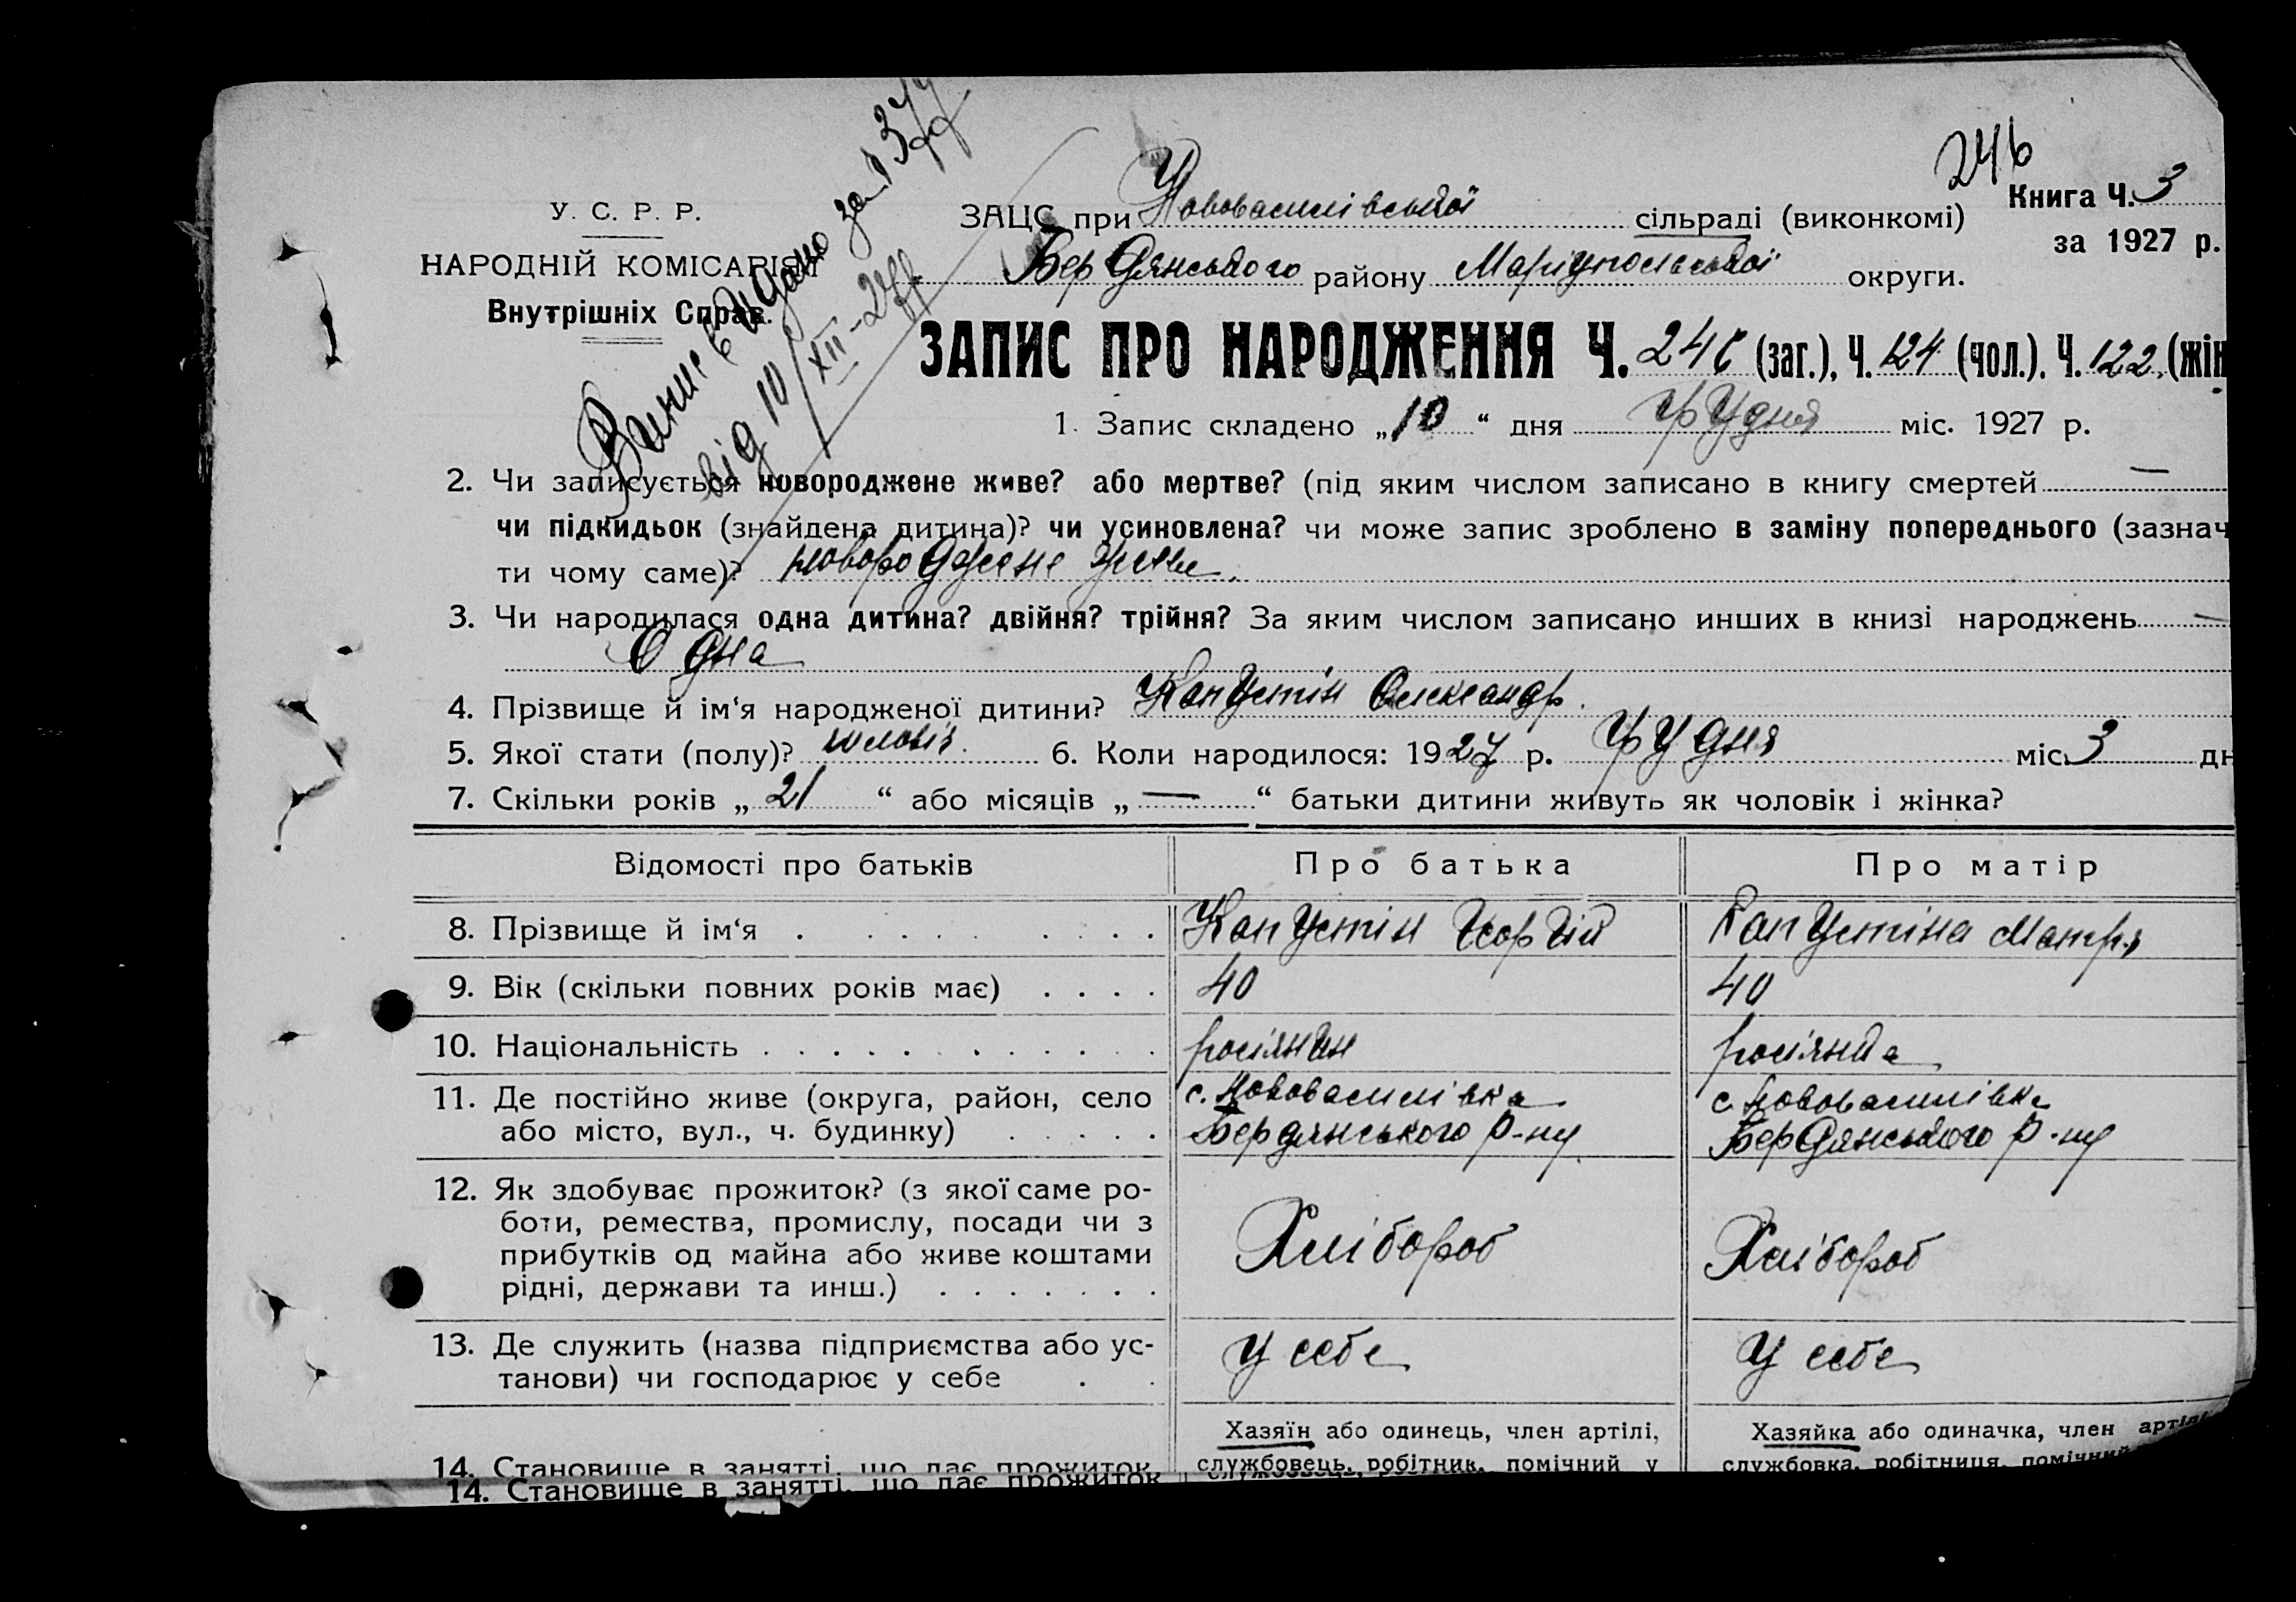 246
У. С. Р. Р.
НАРОДНІЙ КОМІСАРІЯТ
Внутрішніх Справ.
Випис видано за № 377
від 10/XII-27р
ЗАЦС при Нововасилівської сільраді (виконкомі)
Книга Ч. 3
за 1927 р.
Бердянського району Маріупольської округи.
ЗАПИС ПРО НАРОДЖЕННЯ Ч. 246 (заг.), Ч. 124 (чол.), Ч. 122. (жін
1. Запис складено „10“ дня грудня міс. 1927 р.
2. Чи записується новороджене живе? або мертве? (під яким числом записано в книгу смертей —
чи підкидьок (знайдена дитина)? чи усиновлена? чи може запис зроблено в заміну попереднього (зазнач
ти чому саме)? новороджене живе.
3. Чи народилася одна дитина? двійня? трійня? За яким числом записано инших в книзі народжень —
Одна
4. Прізвище й ім‘я народженої дитини? Капустін Олександр.
5. Якої стати (полу)? чоловіч. 6. Коли народилося: 1927 р. грудня міс. 3 дн
7. Скільки років „ 21 “ або місяців „ — “ батьки дитини живуть як чоловік і жінка?
Відомості про батьків Про батька Про матір
8. Прізвище й ім‘я . . . . . . . . . Капустін Георгій Капустіна Матр.
9. Вік (скільки повних років має) . . . . 40 40
10. Національність . . . . . . . . . . . . росіянин росіянка
11. Де постійно живе (округа, район, село с. Нововасилівка с. Нововасилівка
або місто, вул., ч. будинку) . . . . . Бердянського р-ну. Бердянського р-ну
12. Як здобуває прожиток? (з якої саме ро-
боти, ремества, промислу, посади чи з
прибутків од майна або живе коштами Хлібороб Хлібороб
рідні, держави та инш.) . . . . . . .
13. Де служить (назва підприємства або ус- у себе у себе
танови) чи господарює у себе . .
Хазяїн або одинець, член артілі, Хазяйка або одиначка, член артілі
14. Становище в занятті, що дає прожиток службовець, робітник, помічний у службовка, робітниця, помічний
14. Становище в занятті, що дає прожиток